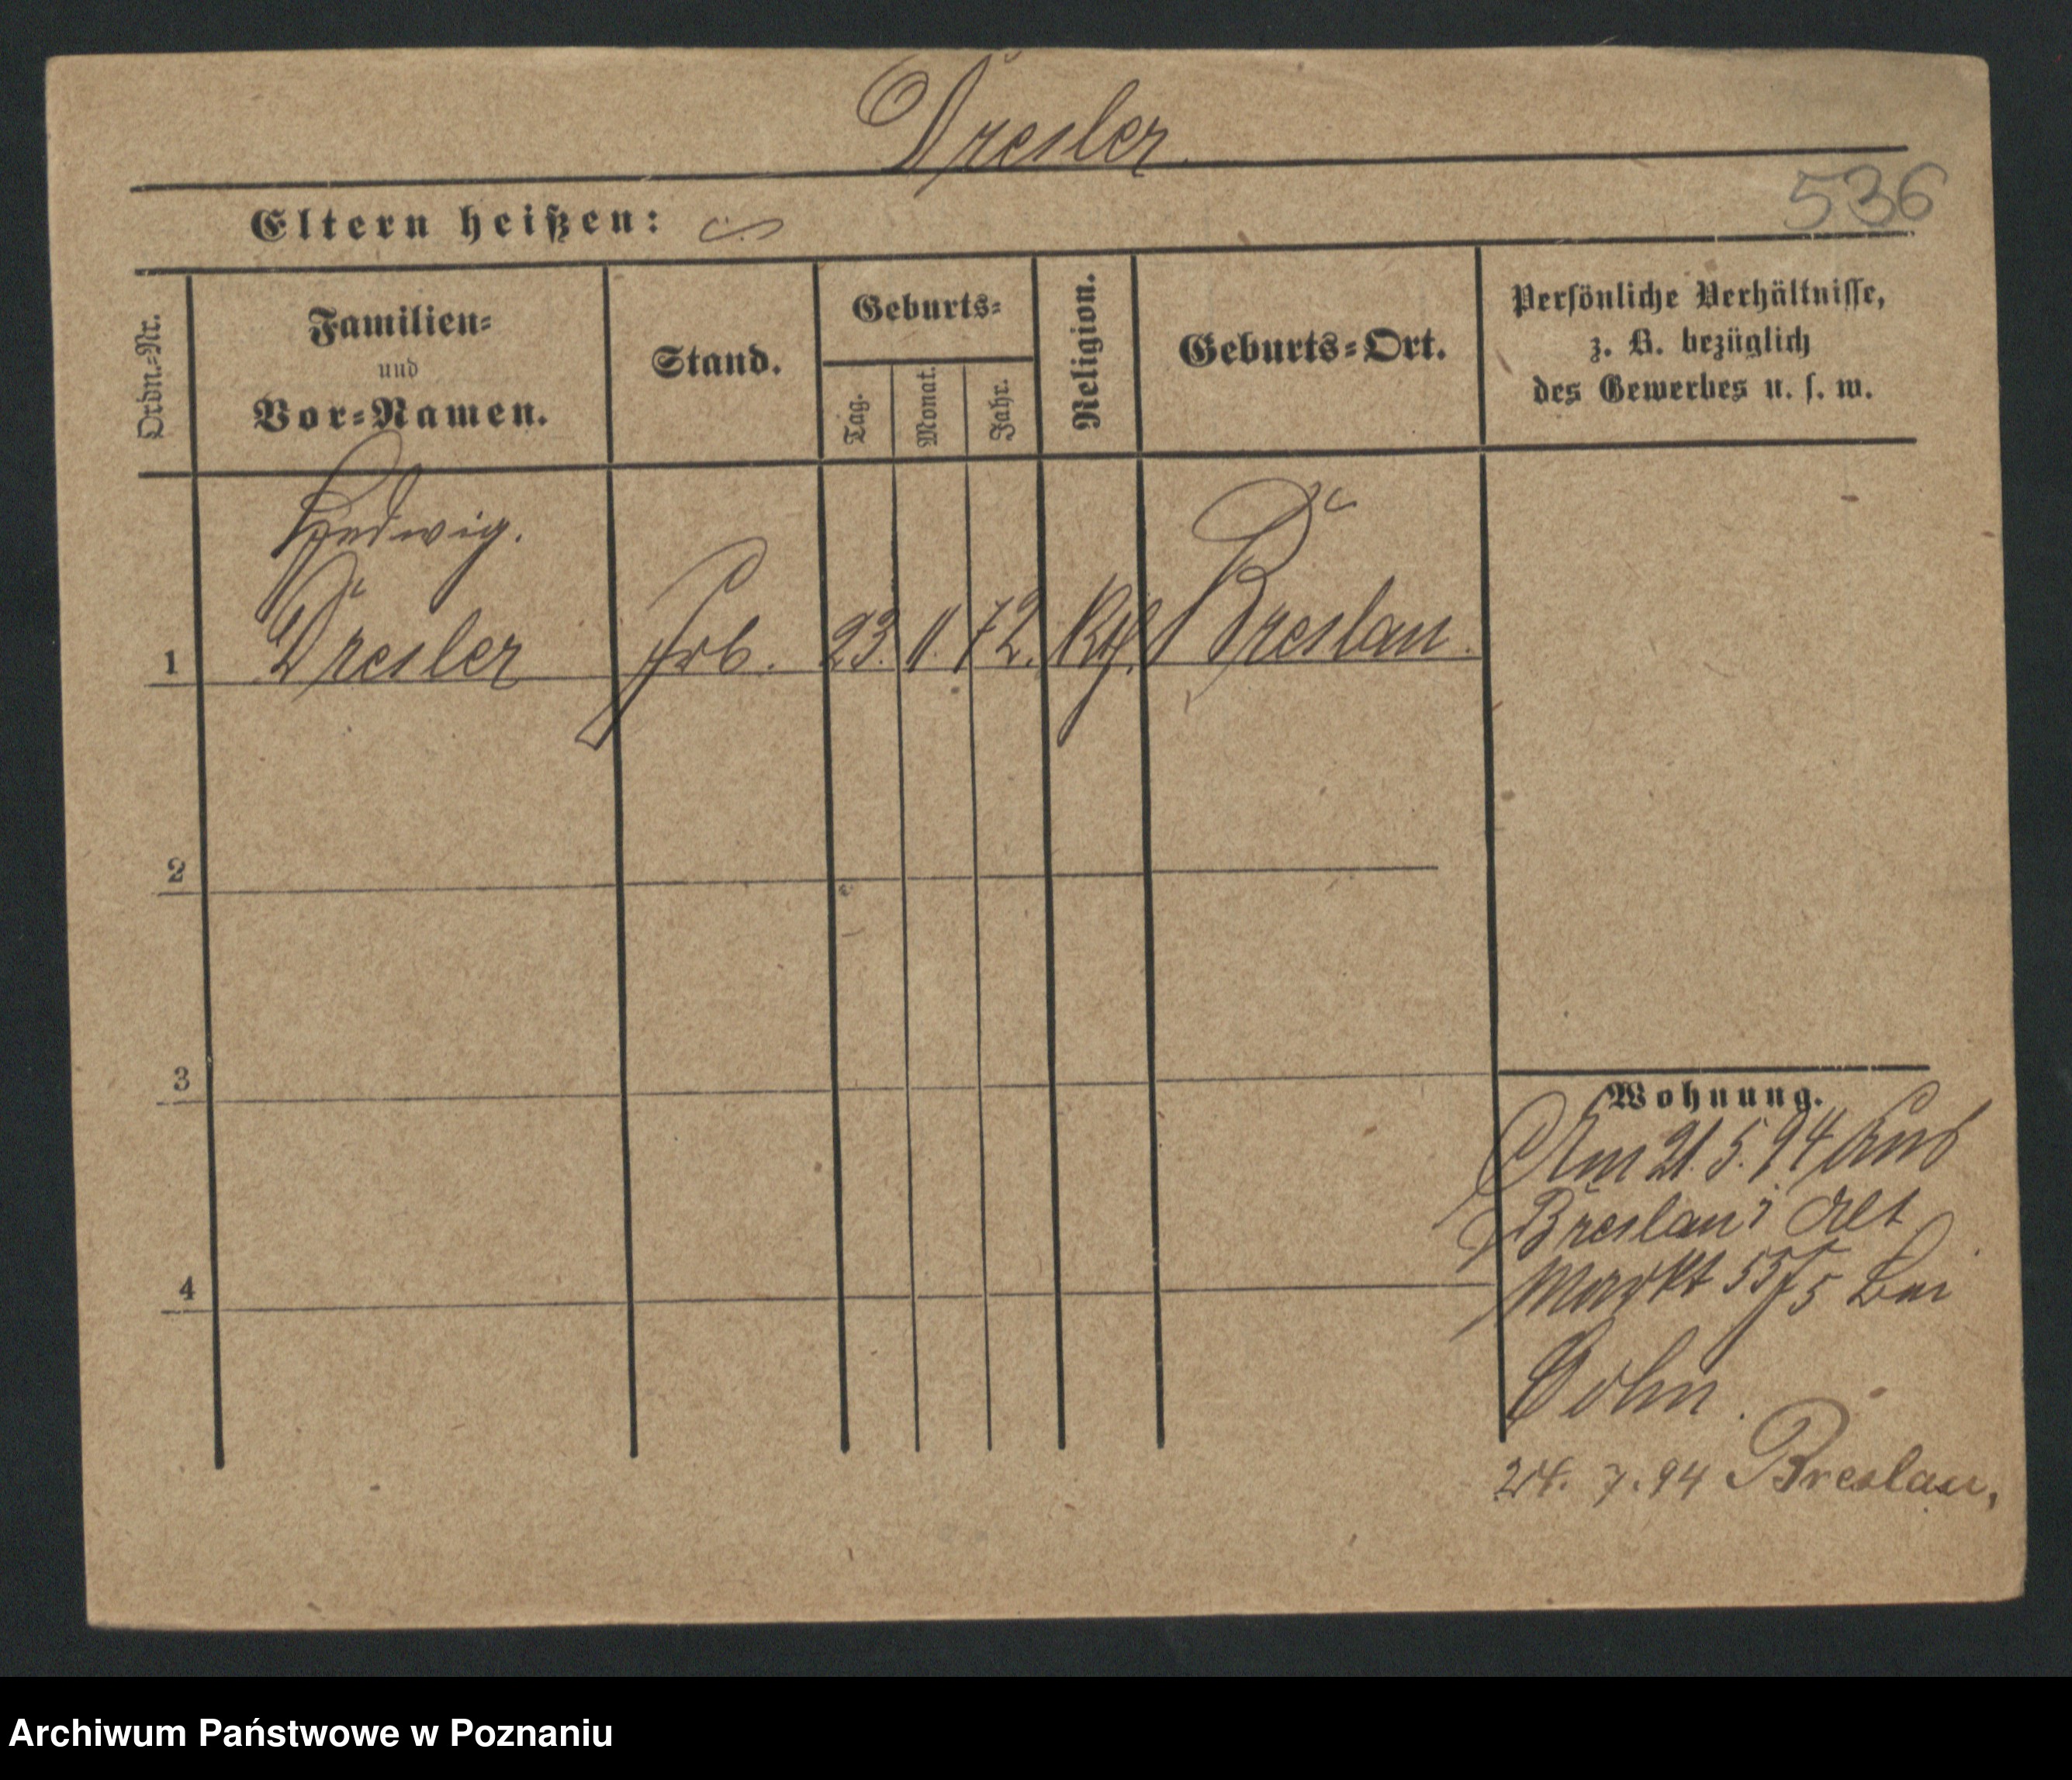 Dresler
536
Eltern heißen:
Ordn.-Nr.
Familien-
und
Vor-Namen.
Stand.
Geburts-
Tag.
Monat.
Jahr.
Religion.
Geburts-Ort.
Persönliche Verhältnisse,
z. B. bezüglich
des Gewerbes u. s. w.
Hedwig.
1 Dresler 23. 11. 72. Kth. Breslau.
2
3
4
Wohnung.
Am 21. 5. 94 aus
Breslau Alt
Markt 55/5 bei
Cohn.
24. 7. 94 Breslau,
Archiwum Państwowe w Poznaniu